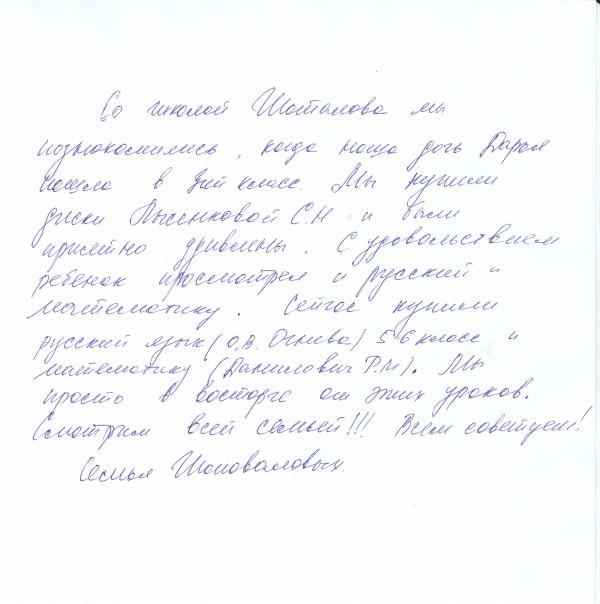 Со школой Шаталова мы
познакомились, когда наша дочь Дарья
пошла в 3ий класс. Мы купили
диски Лысенковой С.Н и были
приятно удивлены. С удовольствием
ребенок просмотрел и русский и
математику. Сейчас купили
русский язык (О.В. Огнева) 5-6 класс и
математику (Данилович Р.М). Мы
просто в восторге от этих уроков.
Смотрим всей семьей!!! Всем советуем!
Семья Шаповаловых.